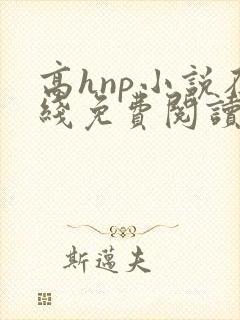 高hnp小説在
綫免費閱讀
斯邁夫